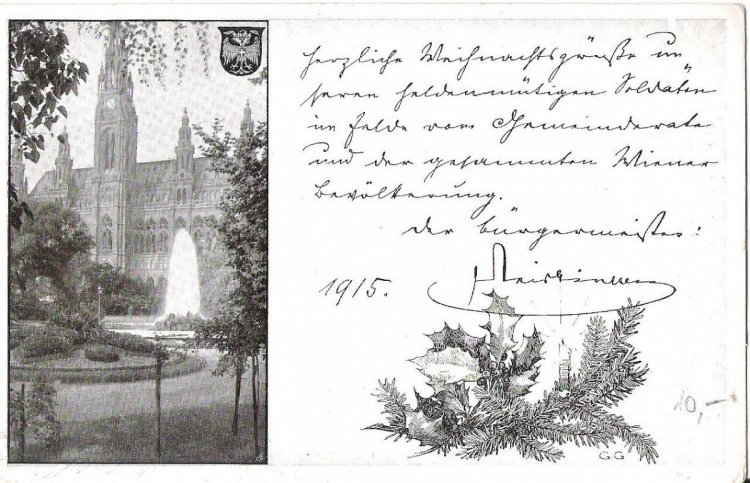 Herzliche Weihnachtsgrüße un-
seren heldenmütigen Soldaten
im Felde vom Gemeinderate
und der gesammten Wiener
Bevölkerung.
Der Bürgermeister:
1915.
Weiskirchner
10,-
GG